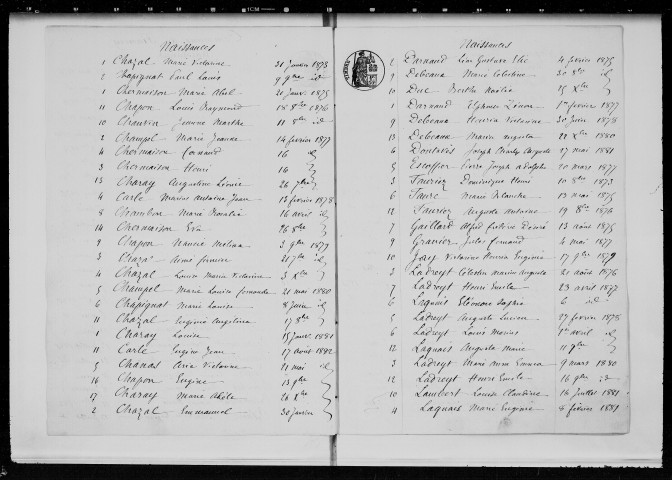 Naissances
1 Chazal Marie Victorine 31 Janvier 1873
2 Chapignat Paul Louis 9 9bre id
1 Chermaison Marie Abel 20 Janv. 1875
11 Chapon Louis Raymond 18 8bre 1876
10 Chauvin Jeanne Marthe 11 8bre id
2 Champel Marie Jeanne 14 février 1877
4 Chermaison Fernand 16 id
3 Chermaison Henri 16
13 Charay Augustine Louise 26 7bre
4 Carle Marius Antoine Jean 13 février 1878
8 Chambon Marie Rosalie 16 avril id
14 Chermaison Eva 26 8bre
9 Chapon Nancie Melina 3 9bre 1879
3 Chazal 21 7bre id
4 Chazal Louise Marie Victorine 3 Xbre
5 Champel Marie Louise fernande 21 mai 1880
6 Chapignat Marie Louise 8 Juin id
11 Chazal Eugénie Angelina 17 8bre
1 Charay Louise 15 Janv. 1881
11 Carle Eugène Jean 17 août 1882
5 Chanas Victorine 21 mai id
16 Chapon Eugène 13 9bre
17 Charay Marie Adèle 26 Xbre
2 Chazal Emmanuel 30 Janvier
Naissances
2 Darnaud Léon Gustave Elie 4 février 1875
9 Debeaux Marie Célestine 30 8bre id
10 Duc Berthe Noélie 15 Xbre
1 Darnaud Elphège Zénon 1er février 1877
9 Debeaux Henria Victorine 30 Juin 1878
13 Debeaux Marin Auguste 22 Xbre 1880
6 Dontarès Joseph Charles Auguste 27 mai 1881
5 Escoffier Pierre Joseph adolphe 20 mars 1877
3 Faurier Dominique Henri 10 8bre 1873
6 Faure Marie Blanche 13 mai 1875
12 Faurier Auguste Antoine 19 8bre 1876
7 Gaillard Alfred Isidore Désiré 13 août 1875
9 Granier Jules Fernand 4 mai 1877
10 Jouy Victorine Henria Eugénie 17 9bre 1879
3 Ladreyt Célestin Marius Auguste 21 août 1876
7 Ladreyt Henri Emile 23 avril 1877
6 Laquais Eléonore Sophie 6 id
5 Ladreyt Auguste Lucien 27 février 1878
6 Ladreyt Louis Marius 1er avril id
12 Laquais Auguste Marie 11 7bre
3 Ladreyt Marie Anna Emma 9 mars 1880
12 Ladreyt Henri Emile 16 9bre id
10 Lambert Louise Claudine 14 Juillet 1881
4 Laquais Marie Eugénie 8 février 1881